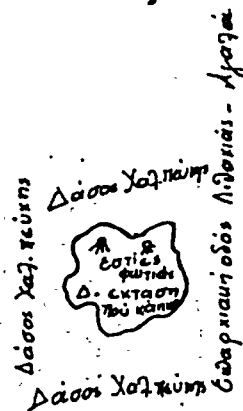 Δάσος Χαλ. πεύκης
Δάσος Χαλ. πεύκης
Εστίες
φωτιάς
Δ. έκταση
που κάηκε
Δάσος Χαλ. πεύκης
Επαρχιακή οδός Λιθακιάς - Αγαλά